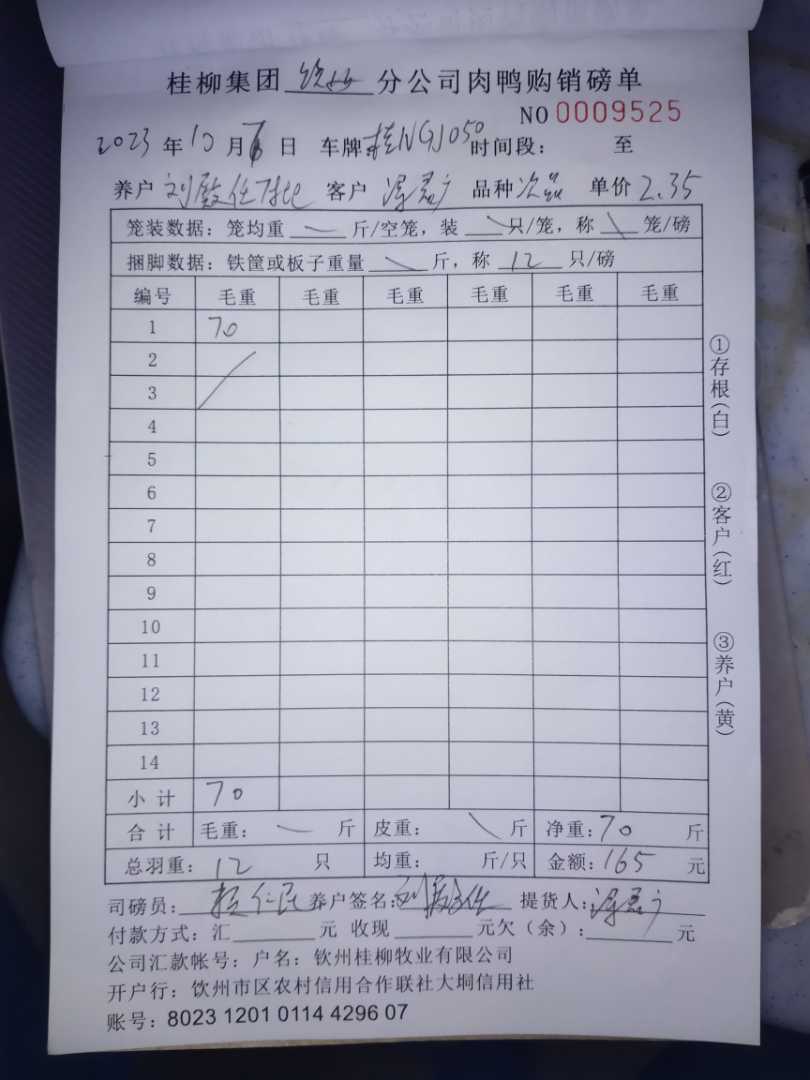 桂柳集团 分公司肉鸭购销磅单
NO 0009525
2023 年 10 月 日 车牌 桂NGJ050 时间段： 至
养户 刘 客户 品种 次品 单价 2.35
笼装数据：笼均重 斤/空笼，装 只/笼，称 笼/磅
捆脚数据：铁筐或板子重量 斤，称 12 只/磅
编号 毛重 毛重 毛重 毛重 毛重 毛重
1 70
2
3
4
5
6
7
8
9
10
11
12
13
14
小计 70
合计 毛重： 斤 皮重： 斤 净重：70 斤
总羽重：12 只 均重： 斤/只 金额：165 元
司磅员： 仁民 养户签名：刘 提货人：
付款方式：汇 元 收现 元欠（余）： 元
公司汇款帐号：户名：钦州桂柳牧业有限公司
开户行：饮州市区农村信用合作联社大垌信用社
账号：8023 1201 0114 4296 07
①存根（白）
②客户（红）
③养户（黄）